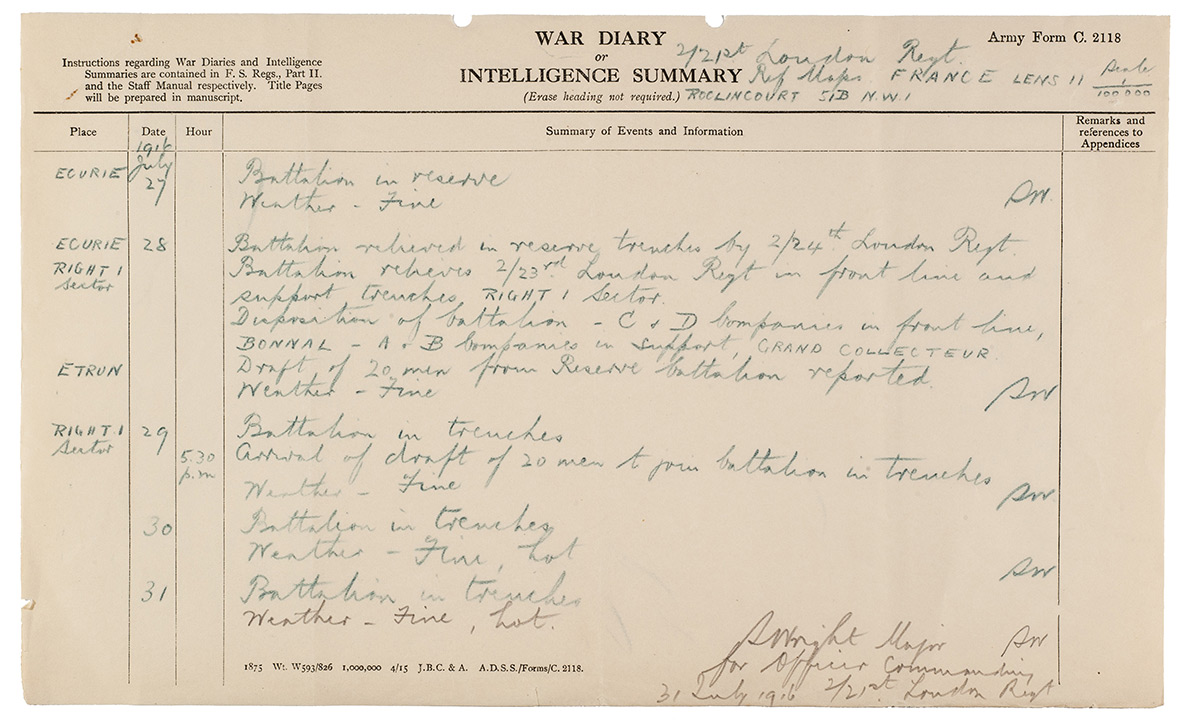 WAR DIARY
or
INTELLIGENCE SUMMARY
(Erase heading not required.)
Army Form C. 2118
Instructions regarding War Diaries and Intelligence
Summaries are contained in F. S. Regs., Part II.
and the Staff Manual respectively. Title Pages
will be prepared in manuscript.
2/21st London Regt.
Ref Maps. FRANCE LENS 11 Scale 1/100000
ROCLINCOURT 51B N.W.1
Place Date Hour Summary of Events and Information Remarks and references to Appendices
1916
July
ECURIE 27 Battalion in reserve
Weather - Fine SW.
ECURIE 28 Battalion relieved in reserve trenches by 2/24th London Regt.
RIGHT 1 Sector Battalion relieves 2/23rd London Regt in front line and
support trenches, RIGHT 1 Sector.
Disposition of battalion - C & D Companies in front line,
BONNAL - A & B Companies in support, GRAND COLLECTEUR
ETRUN Draft of 20 men from Reserve battalion reported.
Weather - Fine SW
RIGHT 1 Sector 29 Battalion in trenches
5.30 p.m Arrival of draft of 20 men to join battalion in trenches
Weather - Fine SW.
30 Battalion in trenches
Weather - Fine, hot SW
31 Battalion in trenches
Weather - Fine, hot.
SWright Major SW
for Officer Commanding
31 July 1916 2/21st London Regt
1875 Wt. W593/826 1,000,000 4/15 J.B.C. & A. A.D.S.S./Forms/C. 2118.